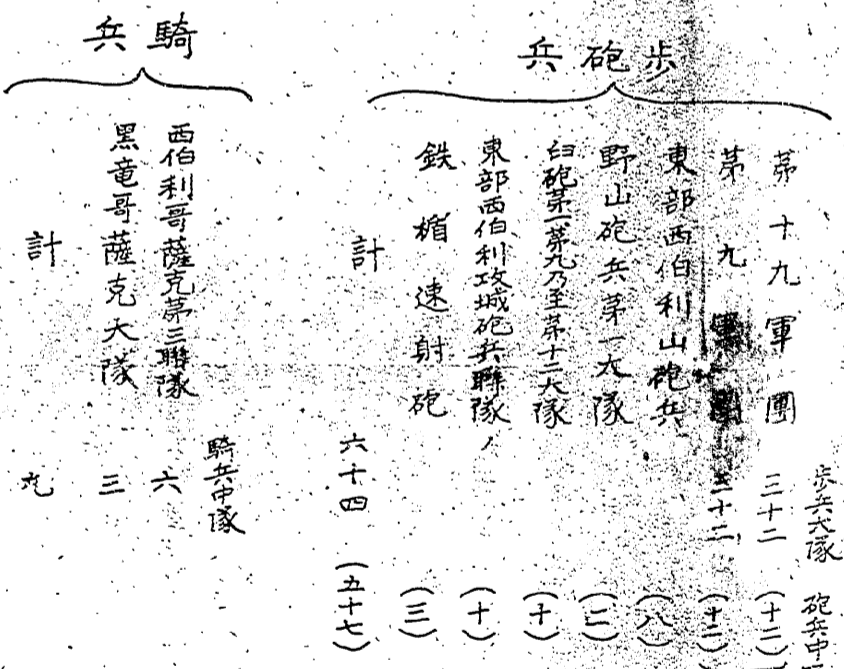 歩砲兵
歩兵大隊 砲兵中
第十九軍團 三十二 (十二)
第九軍團 三十二 (十二)
東部西伯利山砲兵 (八)
野山砲兵第一大隊 (二)
臼砲第一第九乃至第十二大隊 (十)
東部西伯利攻城砲兵聯隊 (十)
鉄楯速射砲 (三)
計 六十四 (五十七)
騎兵
騎兵中隊
西伯利哥薩克第三聯隊 六
黒竜哥薩克大隊 三
計 九